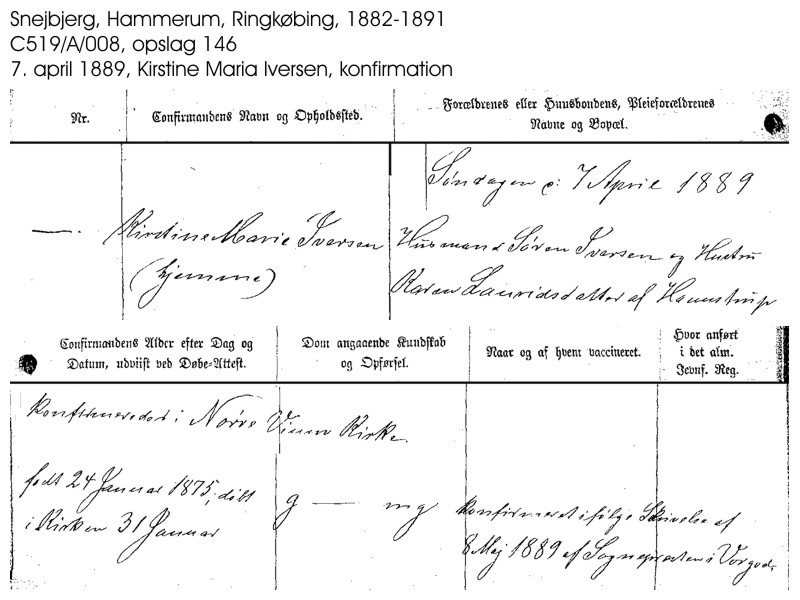 Snejbjerg, Hammerum, Ringkøbing, 1882-1891
C519/A/008, opslag 146
7. april 1889, Kirstine Maria Iversen, konfirmation
Nr.
Confirmandens Navn og Opholdssted.
Forældrenes eller Huusbondens, Pleieforældrenes
Navne og Bopæl.
Søndagen d: 7 April 1889
—. Kirstine Marie Iversen
(hjemme)
Husmand Søren Iversen og Hustru
Karen Lauridsdatter af Hammstrup
Confirmandens Alder efter Dag og
Datum, udviist ved Døbe-Attest.
Dom angaaende Kundskab
og Opførsel.
Naar og af hvem vaccineret.
Hvor anført
i det alm.
Jevnf. Reg.
konfirmeredes i Nørre Vium Kirke.
født 24 Januar 1875, døbt
i Kirken 31 Januar
g — mg
konfirmeret ifølge Skrivelse af
8 Maj 1889 af Sognepræsten i Vorgod.